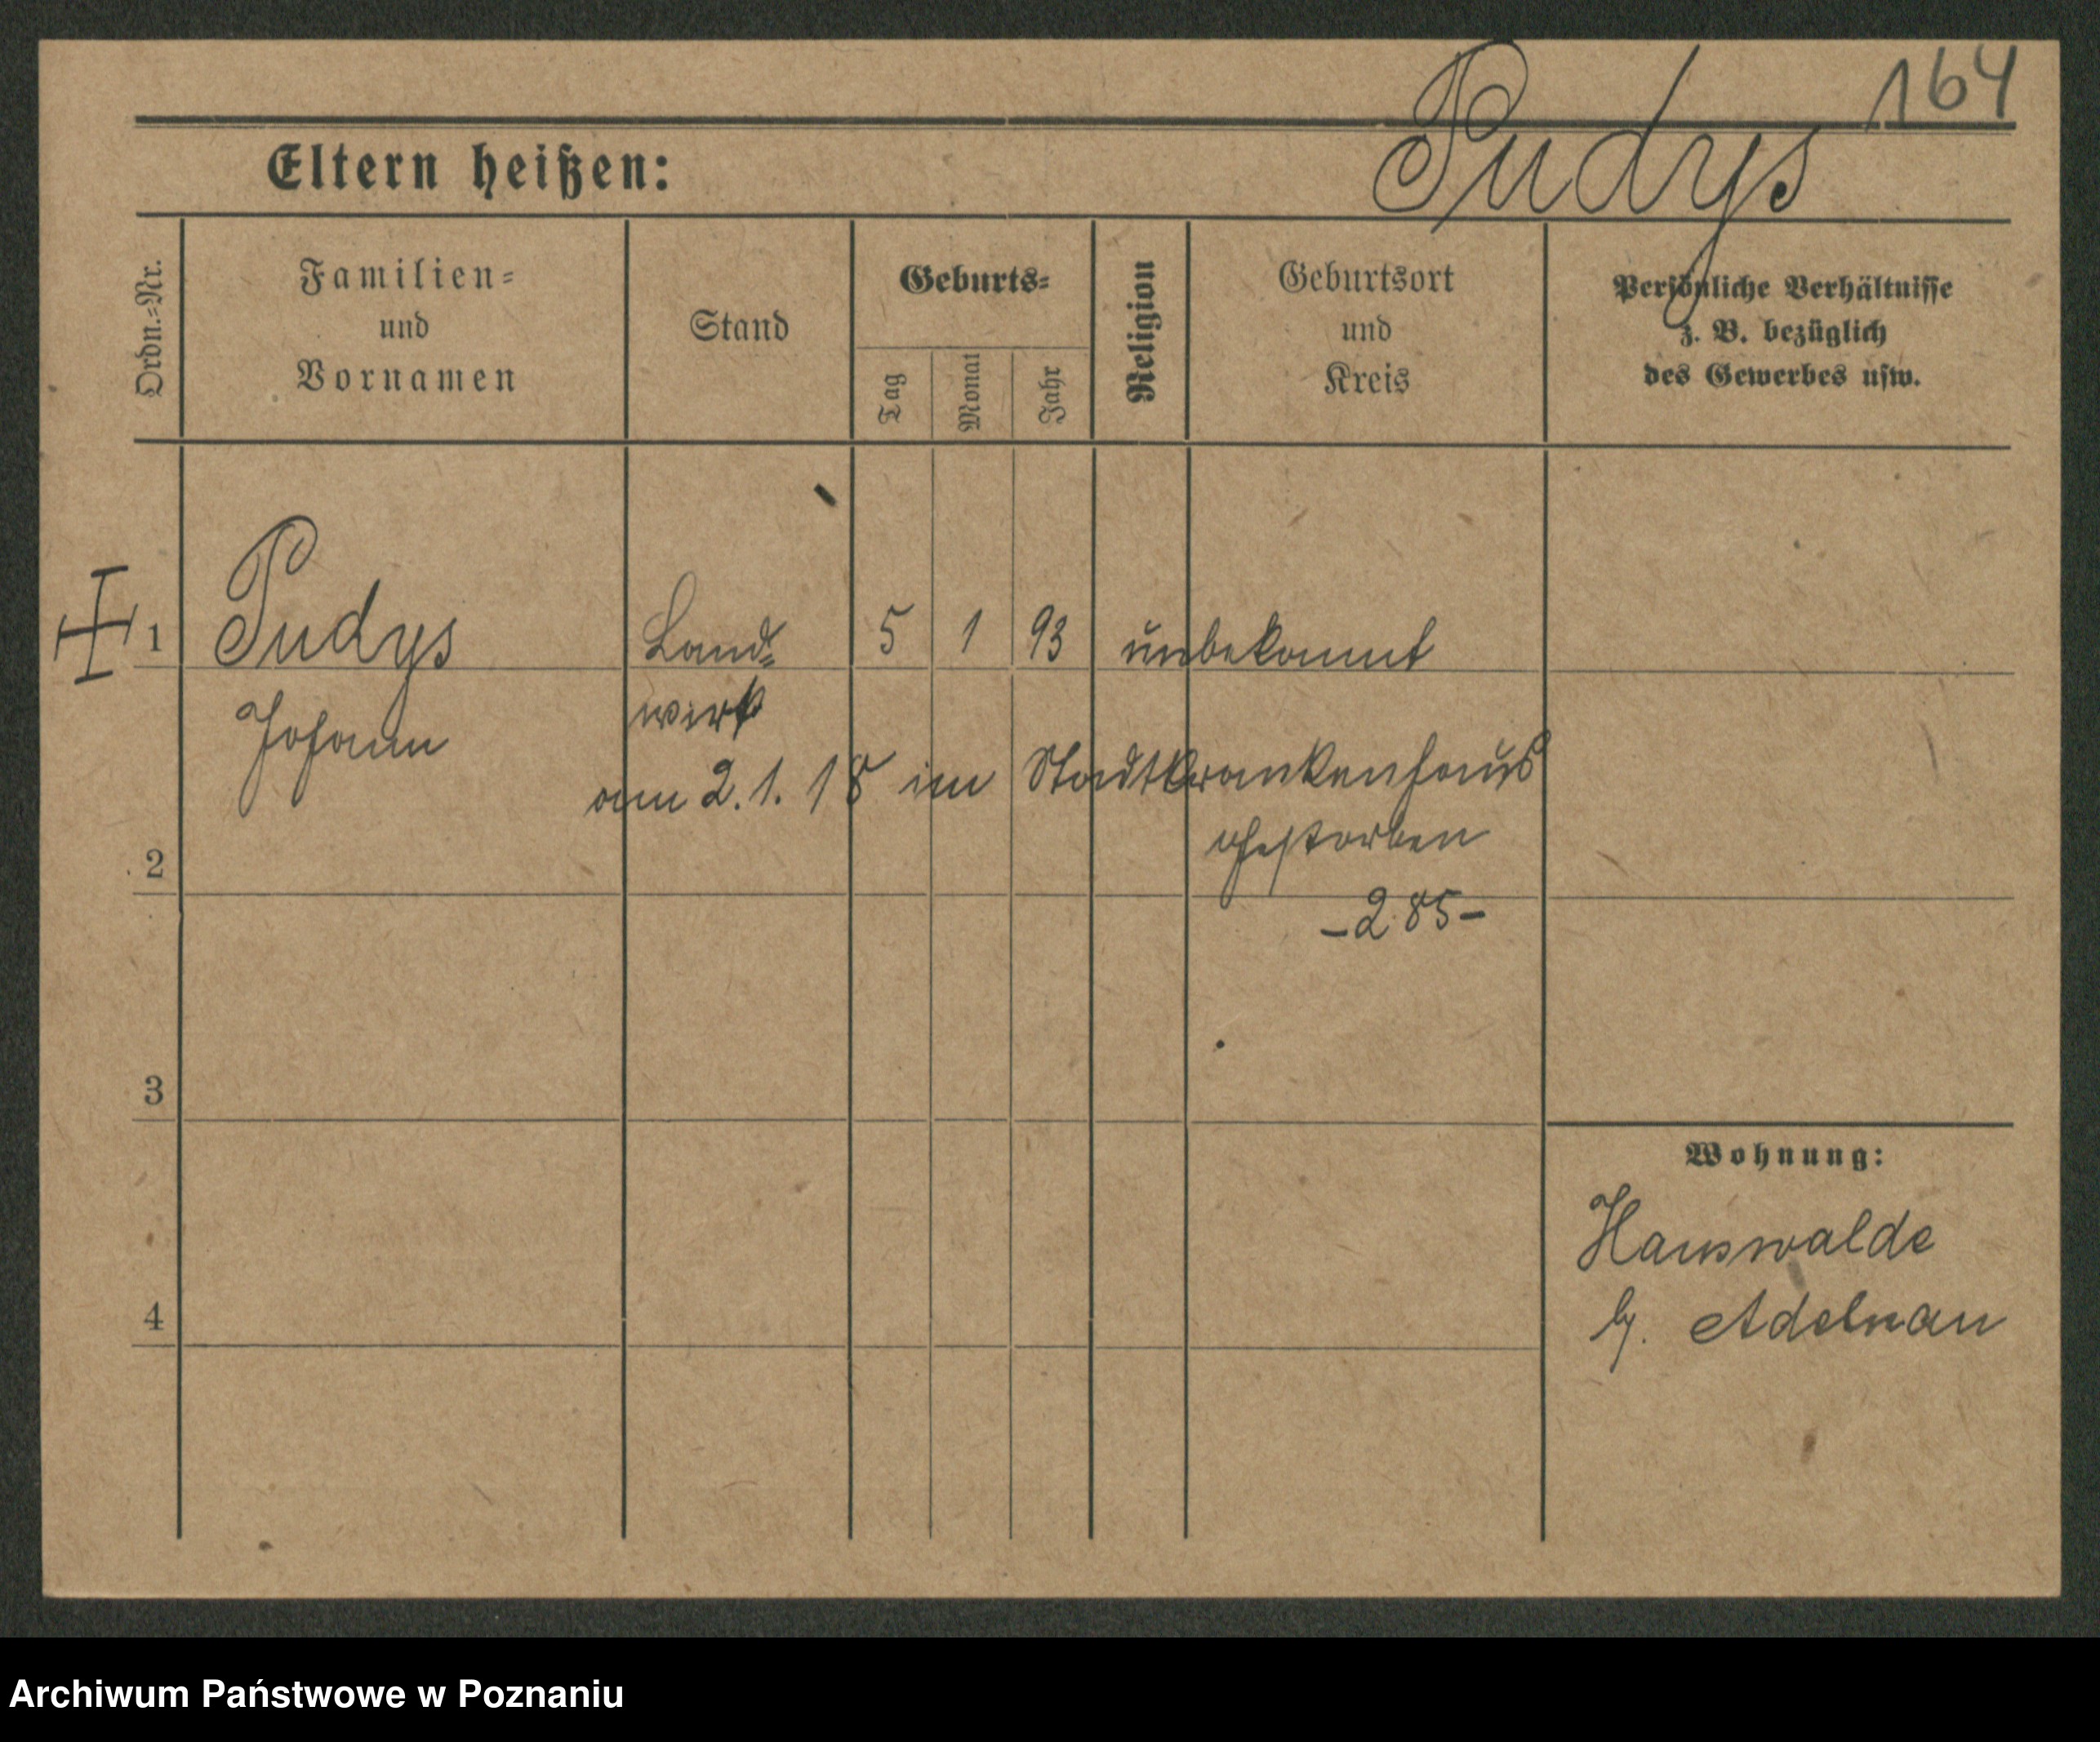 164
Pudys
Eltern heißen:
Ordn.-Nr.
Familien-
und
Vornamen
Stand
Geburts-
Tag
Monat
Jahr
Religion
Geburtsort
und
Kreis
Persönliche Verhältnisse
z. B. bezüglich
des Gewerbes usw.
1
Pudys
Land-
5
1
93
unbekannt
Johann
wirt
am 2.1.18 im Stadtkrankenhaus
gestorben
2
-285-
3
Wohnung:
Hauswalde
4
b. Adelnau
Archiwum Państwowe w Poznaniu